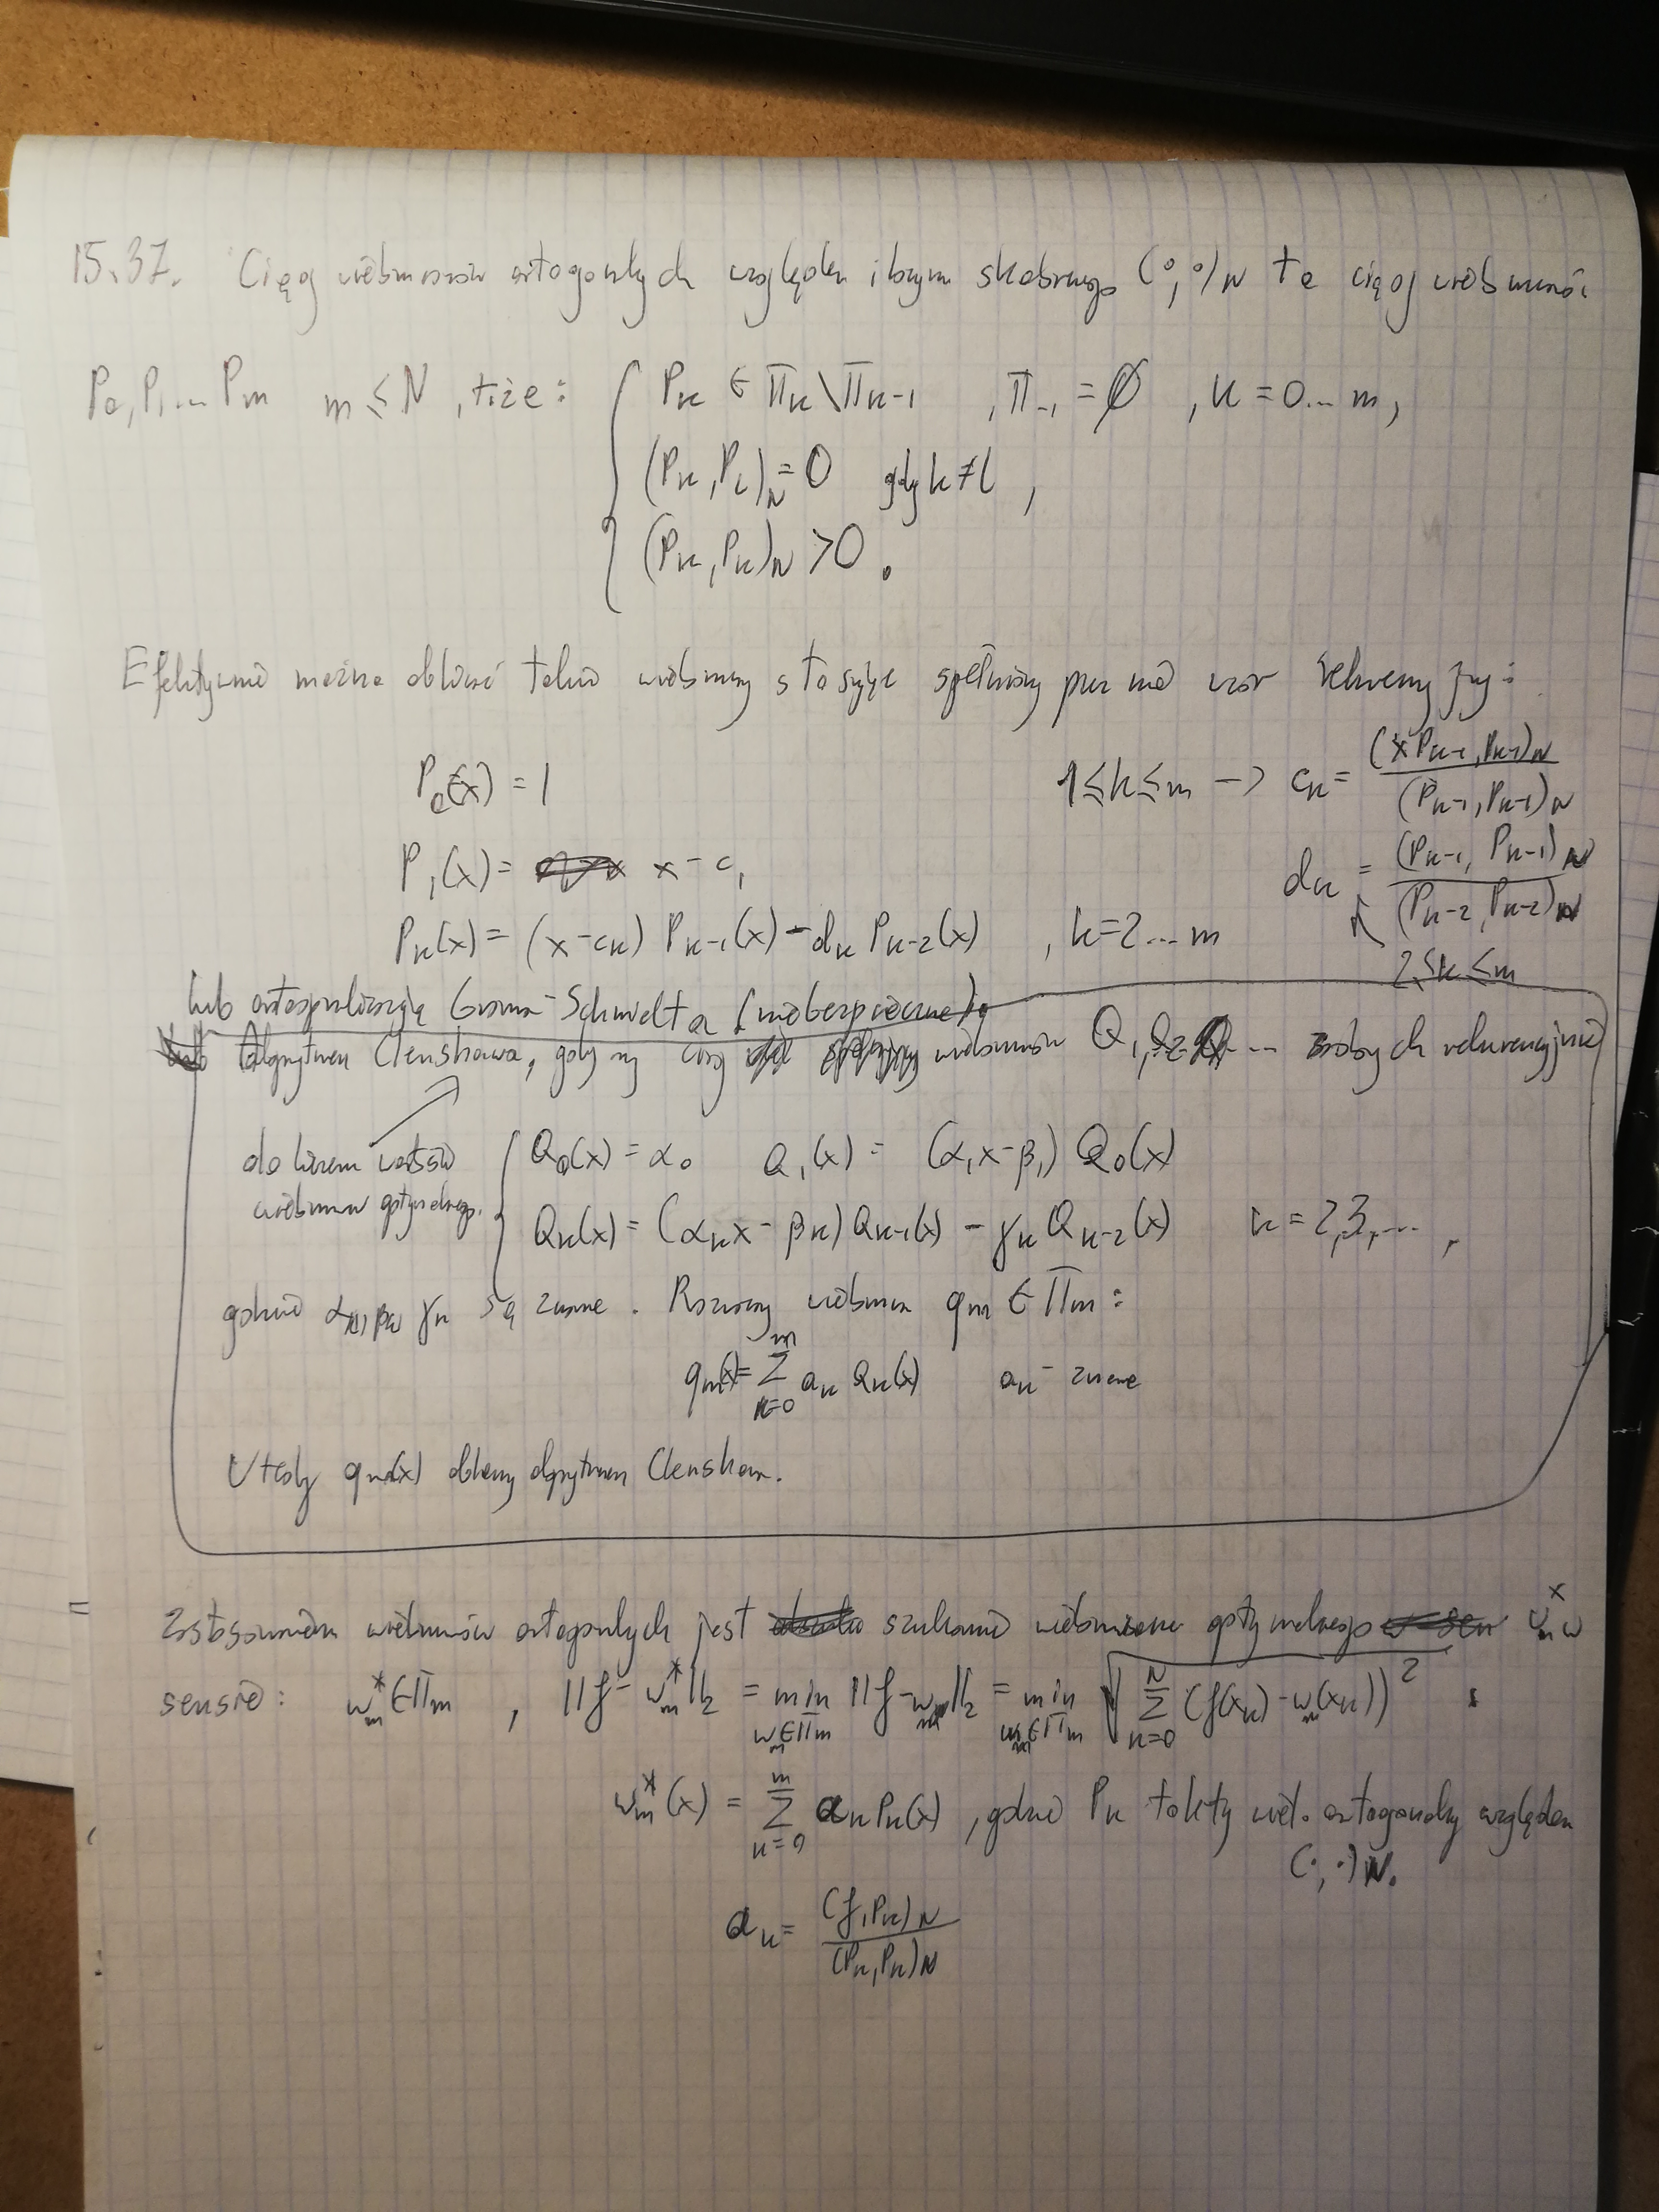 15.37. Ciąg wielomianów ortogonalnych względem iloczynu skalarnego (·,·)N to ciąg wielomianów
P0, P1 ... Pm m ≤ N, że: { Pk ∈ Πk \ Πk-1 , Π-1 = ∅ , k = 0... m,
(Pk, Pl)N = 0 gdy k ≠ l ,
(Pk, Pk)N > 0 .
Efektywnie można obliczać takie wielomiany stosując spełniony przez nie wzór rekurencyjny:
P0(x) = 1
1 ≤ k ≤ m → ck = (xPk-1, Pk-1)N / (Pk-1, Pk-1)N
P1(x) = x - c1
dk = (Pk-1, Pk-1)N / (Pk-2, Pk-2)N
Pk(x) = (x - ck) Pk-1(x) - dk Pk-2(x) , k = 2 ... m
2 ≤ k ≤ m
lub ortogonalizacją Grama-Schmidta (niebezpieczne)
Algorytm Clenshawa, gdy ciąg wielomianów Q1, Q2 ... rekurencyjnie
do liczenia wartości
wielomianu optymalnego.
{ Q0(x) = α0 Q1(x) = (α1x - β1) Q0(x)
Qk(x) = (αkx - βk) Qk-1(x) - γk Qk-2(x) k = 2,3,... ,
gdzie αk, βk, γk są znane. Rozważmy wielomian qm ∈ Πm :
qm(x) = Σ k=0 m ak Qk(x) ak - znane
Wtedy qm(x) obliczamy algorytmem Clenshawa.
Zastosowaniem wielomianów ortogonalnych jest szukanie wielomianu optymalnego wm* w
sensie: wm* ∈ Πm , ||f - wm*||2 = min wm∈Πm ||f - wm||2 = min wm∈Πm √ Σ k=0 N (f(xk) - wm(xk))²
wm*(x) = Σ k=0 m ak Pk(x) , gdzie Pk to k-ty wiel. ortogonalny względem
(·,·)N.
ak = (f, Pk)N / (Pk, Pk)N